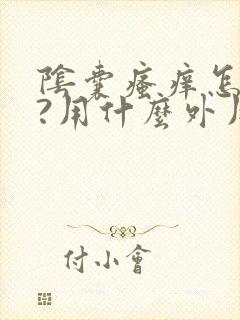 陰囊瘙痒怎
?用什麼外
付小會